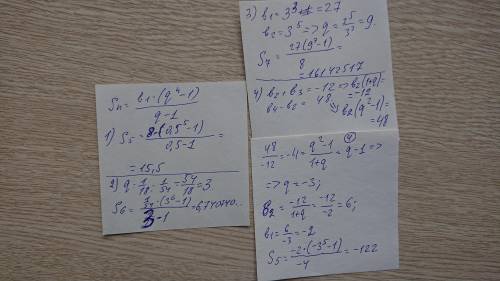 Sn = b1·(q^4-1) / q-1
1) S5 = 8·(0,5^5-1) / 0,5-1 =
= 15,5
2) q = 1/18 : 1/54 = 54/18 = 3
S6 = 1/54·(3^6-1) / 3-1 = 6,740740...
3) b1 = 3^3 = 27
b2 = 3^5 => q = 2^5/3^3 = 9
S7 = 27(9^7-1) / 8 =
= 16142517
4) b2+b3 = -12 => b2(1+q) = -12
b4-b2 = 48 => b2(q^2-1) = 48
48/-12 = -4 = q^2-1 / 1+q = q-1 =>
=> q = -3;
b2 = -12/1+q = -12/-2 = 6;
b1 = 6/-3 = -2
S5 = -2·(-3^5-1) / -4 = -122